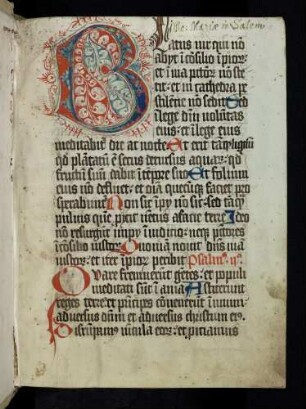 Beatus vir qui nō
abijt ī cōsilio īpior
et ī via pctor nō ste
tit et in cathedra pe
stilētie nō sedit Sed
ī lege dni volūtas
eius et ī lege eius
meditabit die ac nocte Et erit tāq lignū
qd plātatū ē secus decursus aquar qd
fructū suū dabit ī tēpre suo Et foliium
eius nō defluet et oīa quecūq faciet pro
sperabunt Non sic īpij nō sic sed tāq
puluis quē pijcit vētus a facie terre Ideo
nō resurgūt impij ī iudicio neq pctores
ī cōsilio iustor Quoniā nouit dns viā
iustor et iter īpior peribit Psalm ij
Quare fremuerūt gētes et populi
meditati sūt īania Astiterunt
reges terre et pīcipes cōuenerūt ī vnum
aduersus dnm et aduersus christum eius
Dirumpamus vīcula eor et piciamus